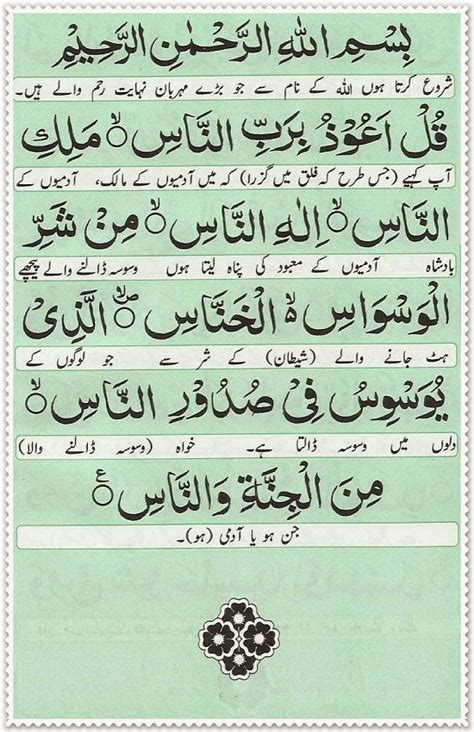 بِسْمِ اللهِ الرَّحْمٰنِ الرَّحِيْمِ
شروع کرتا ہوں اللہ کے نام سے جو بڑے مہربان نہایت رحم والے ہیں۔
قُلْ اَعُوْذُ بِرَبِّ النَّاسِ ۙ مَلِكِ
آپ کہیے (جس طرح کہ فلق میں گزرا) کہ میں آدمیوں کے مالک، آدمیوں کے
النَّاسِ ۙ اِلٰهِ النَّاسِ ۙ مِنْ شَرِّ
بادشاہ آدمیوں کے معبود کی پناہ لیتا ہوں وسوسہ ڈالنے والے پیچھے
الْوَسْوَاسِ ۙ الْخَنَّاسِ ۙ الَّذِىْ
ہٹ جانے والے (شیطان) کے شر سے جو لوگوں کے
يُوَسْوِسُ فِىْ صُدُوْرِ النَّاسِ ۙ
دلوں میں وسوسہ ڈالتا ہے۔ خواہ (وسوسہ ڈالنے والا)
مِنَ الْجِنَّةِ وَالنَّاسِ ع
جن ہو یا آدمی (ہو)۔